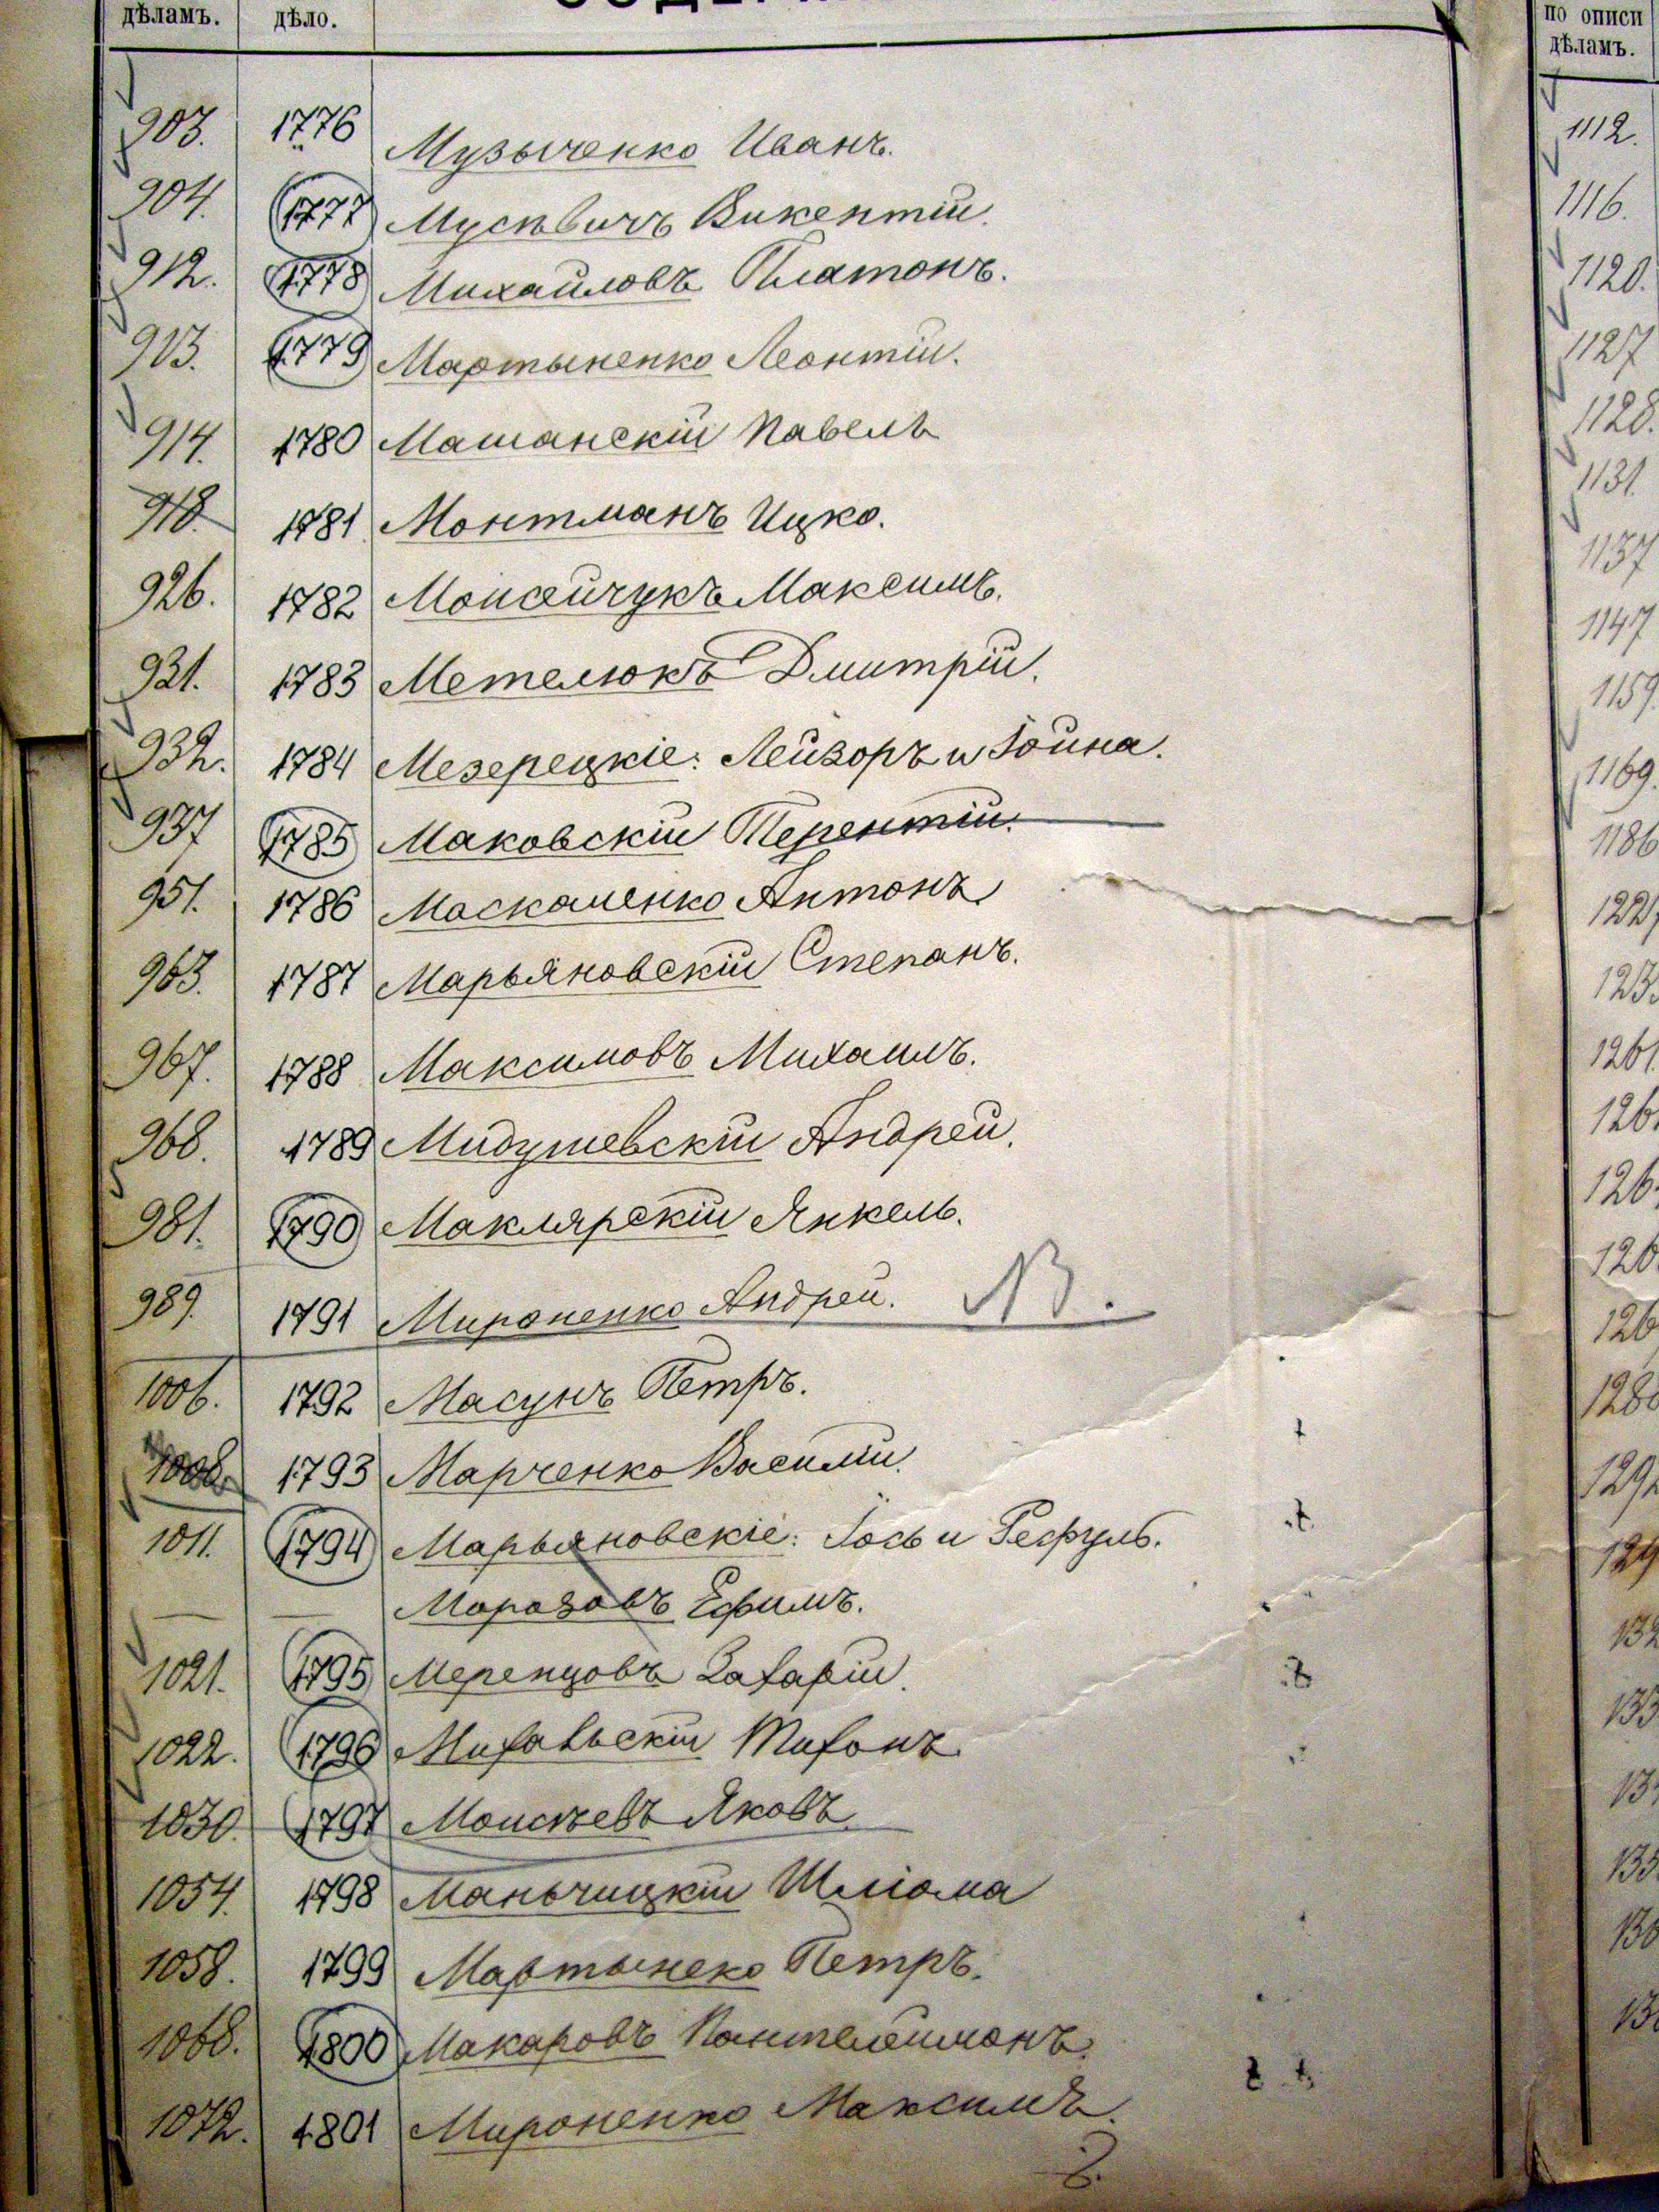 дѣламъ. дѣло. по описи
дѣламъ.
903. 1776 Музыченко Иванъ. 1112.
904. 1777 Мусѣвичъ Викентій. 1116.
912. 1778 Михайловъ Платонъ. 1120.
913. 1779 Мартыненко Леонтій. 1127
914. 1780 Машанскій Павелъ 1128.
918. 1781 Монтманъ Ицко. 1131
926. 1782 Моисейчукъ Максимъ. 1137
931. 1783 Метелюкъ Дмитрій. 1147
932. 1784 Мезерецкіе: Лейзоръ и Іойна. 1159.
937 1785 Маковскій Терентій. 1169.
951. 1786 Маскаленко Антонъ 1186
963. 1787 Марьяновскій Степанъ.
967. 1788 Максимовъ Михаилъ. 1261.
968. 1789 Мидушевскій Андрей.
981. 1790 Маклярскій Янкель.
989. 1791 Мироненко Андрей. NB.
1006. 1792 Масунъ Петръ.
1008. 1793 Марченко Василій.
1011. 1794 Марьяновскіе: Іось и Рефуль.
— — Морозовъ Ефимъ.
1021. 1795 Меренцовъ Захарій.
1022. 1796 Михальскій Тихонъ
1030. 1797 Моисѣевъ Яковъ.
1054. 1798 Маньчицкій Шліома
1058. 1799 Мартынеко Петръ.
1068. 1800 Макаровъ Пантелеймонъ.
1072. 1801 Мироненко Максимъ.